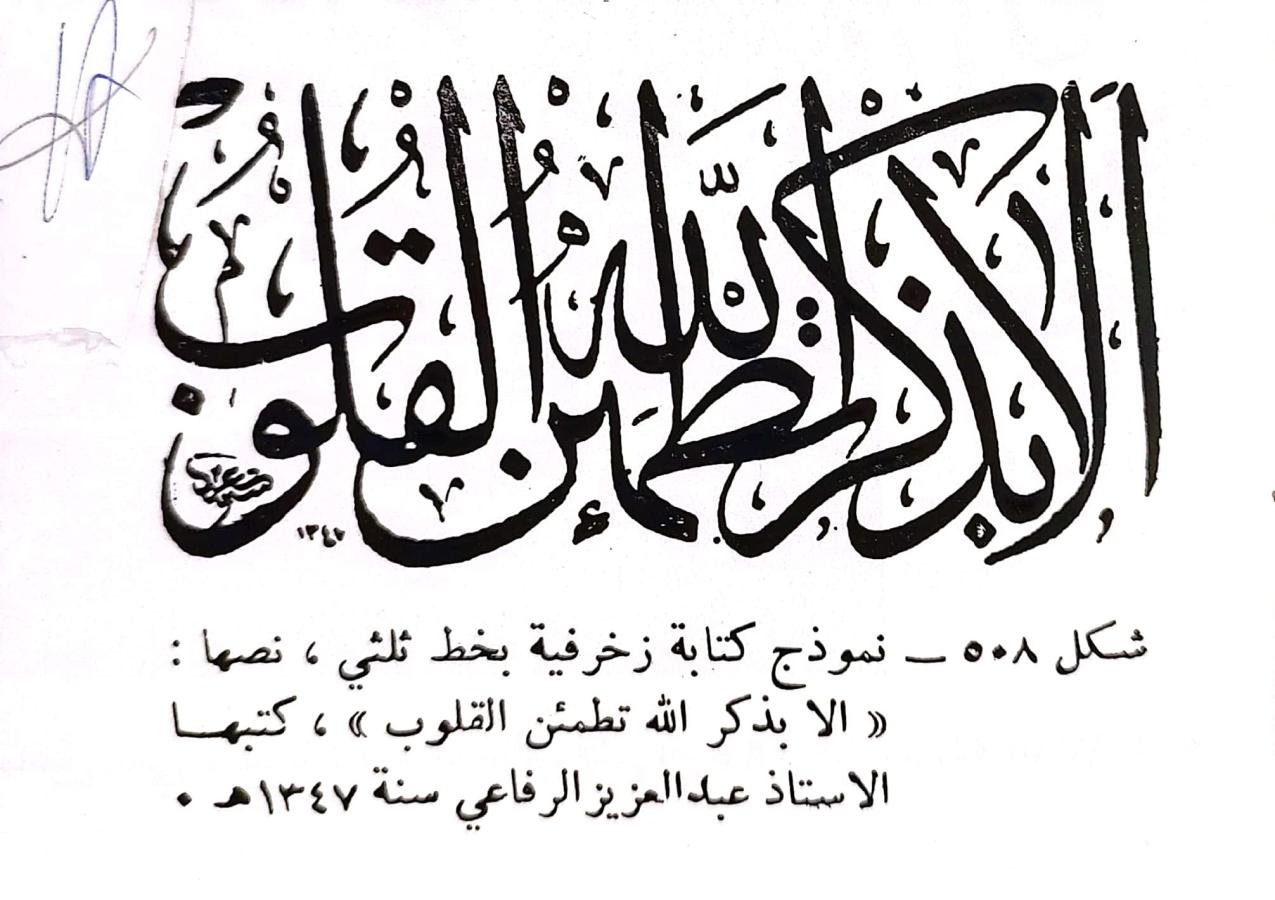 ألا بذكر الله تطمئن القلوب
١٣٤٧
شكل ٥٠٨ — نموذج كتابة زخرفية بخط ثلثي ، نصها :
« الا بذكر الله تطمئن القلوب » ، كتبهـا
الاستاذ عبدالعزيز الرفاعي سنة ١٣٤٧هـ ٠